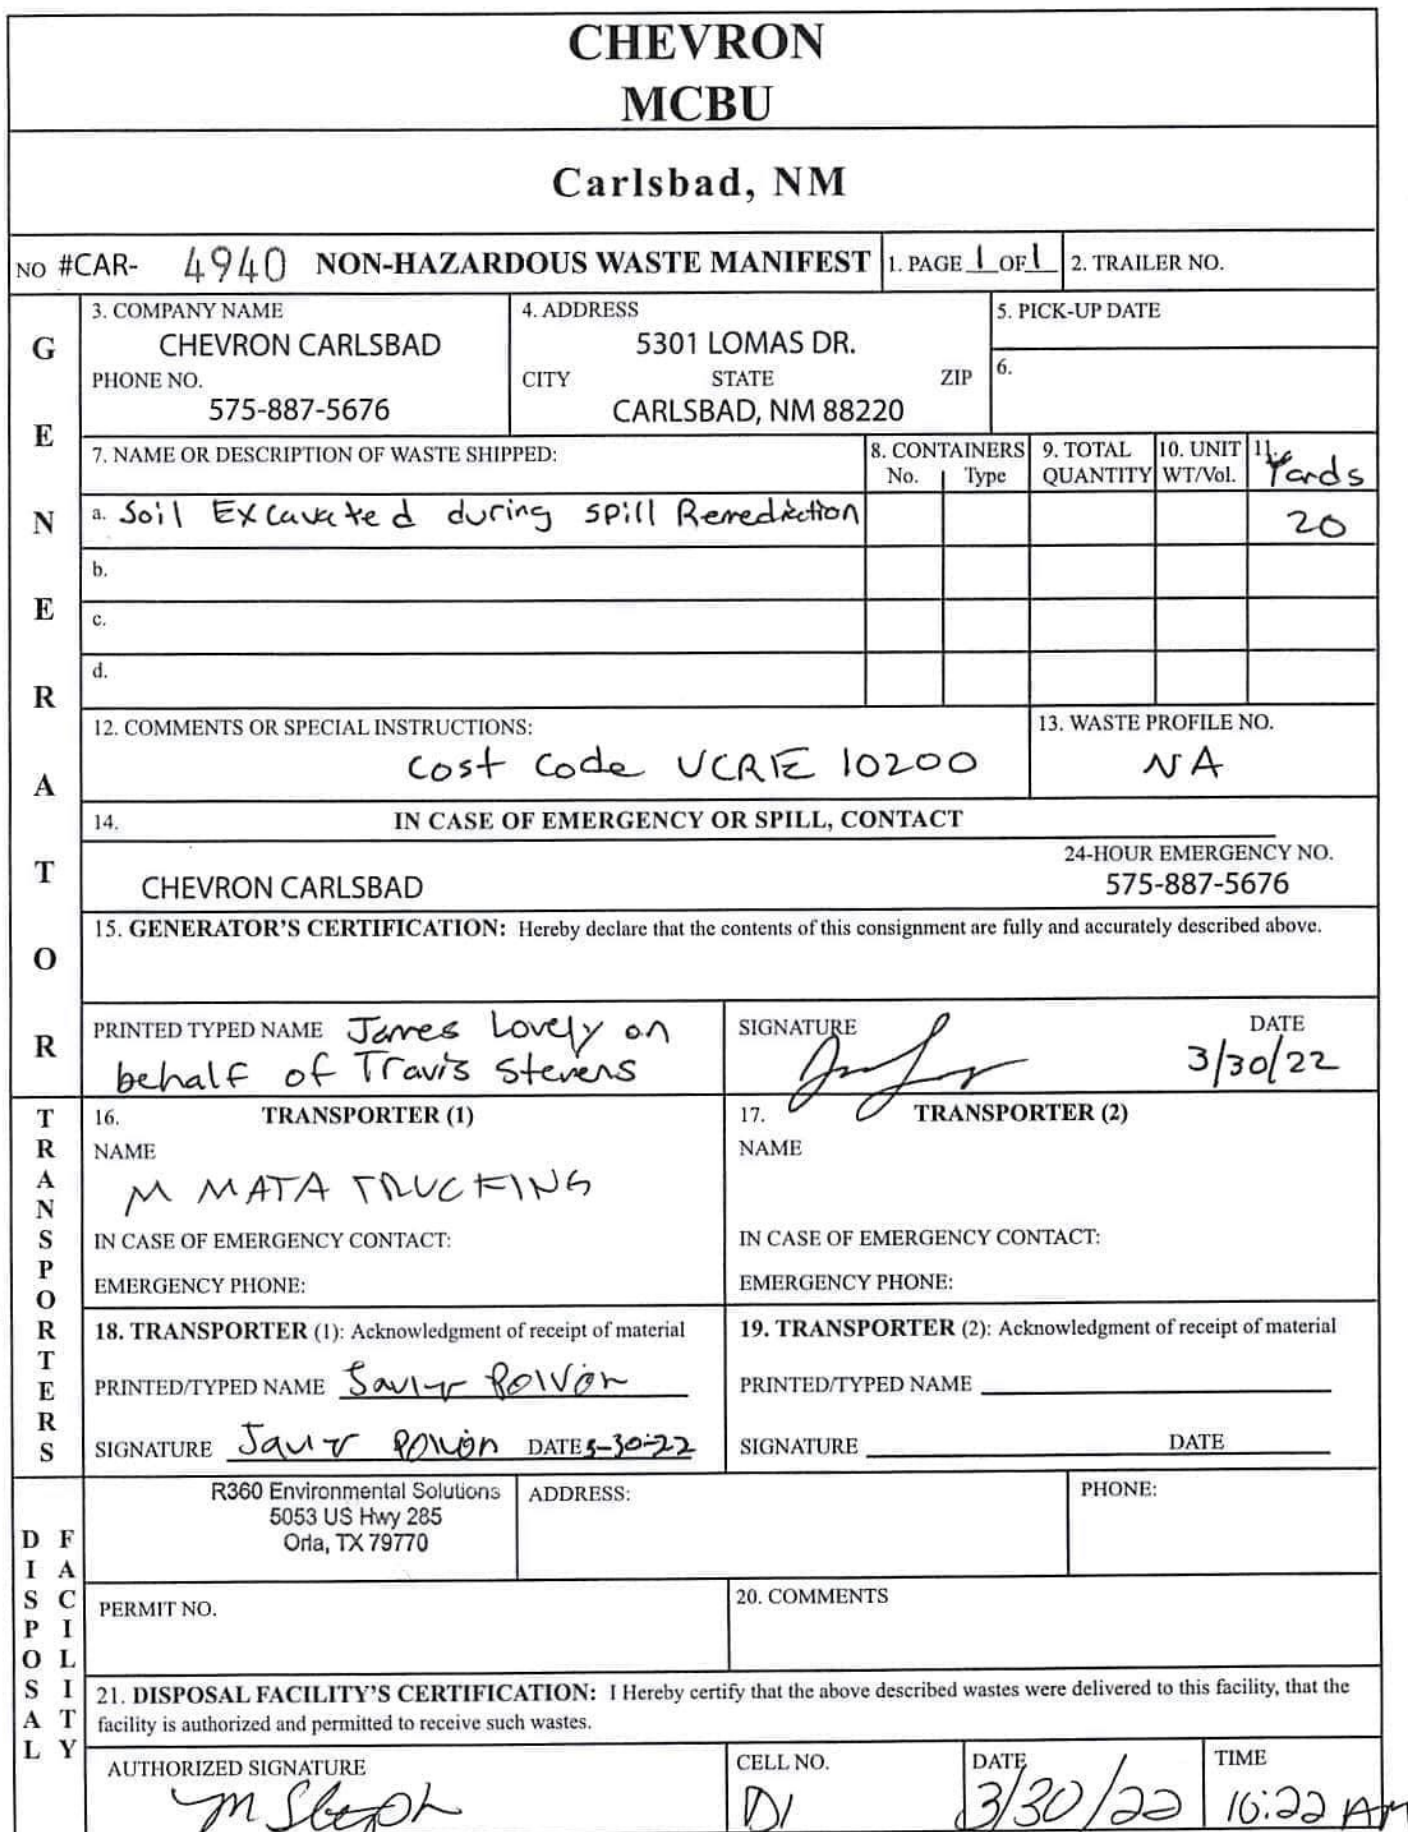 CHEVRON
MCBU
Carlsbad, NM
NO #CAR- 4940 NON-HAZARDOUS WASTE MANIFEST 1. PAGE 1 OF 1 2. TRAILER NO.
GENERATOR
3. COMPANY NAME
CHEVRON CARLSBAD
PHONE NO.
575-887-5676
4. ADDRESS
5301 LOMAS DR.
CITY STATE ZIP
CARLSBAD, NM 88220
5. PICK-UP DATE
6.
7. NAME OR DESCRIPTION OF WASTE SHIPPED:
8. CONTAINERS
No. Type
9. TOTAL
QUANTITY
10. UNIT
WT/Vol.
11.
Yards
a. Soil Excavated during spill Remediation 20
b.
c.
d.
12. COMMENTS OR SPECIAL INSTRUCTIONS:
Cost Code UCRIE 10200
13. WASTE PROFILE NO.
NA
14. IN CASE OF EMERGENCY OR SPILL, CONTACT
24-HOUR EMERGENCY NO.
CHEVRON CARLSBAD 575-887-5676
15. GENERATOR'S CERTIFICATION: Hereby declare that the contents of this consignment are fully and accurately described above.
PRINTED TYPED NAME James Lovely on
behalf of Travis Stevens
SIGNATURE DATE
3/30/22
TRANSPORTERS
16. TRANSPORTER (1)
NAME
M MATA TRUCKING
IN CASE OF EMERGENCY CONTACT:
EMERGENCY PHONE:
17. TRANSPORTER (2)
NAME
IN CASE OF EMERGENCY CONTACT:
EMERGENCY PHONE:
18. TRANSPORTER (1): Acknowledgment of receipt of material
PRINTED/TYPED NAME
SIGNATURE DATE 3-30-22
19. TRANSPORTER (2): Acknowledgment of receipt of material
PRINTED/TYPED NAME
SIGNATURE DATE
DISPOSAL FACILITY
R360 Environmental Solutions
5053 US Hwy 285
Orla, TX 79770
ADDRESS:
PHONE:
PERMIT NO.
20. COMMENTS
21. DISPOSAL FACILITY'S CERTIFICATION: I Hereby certify that the above described wastes were delivered to this facility, that the
facility is authorized and permitted to receive such wastes.
AUTHORIZED SIGNATURE
CELL NO.
D1
DATE
3/30/22
TIME
10:22 AM